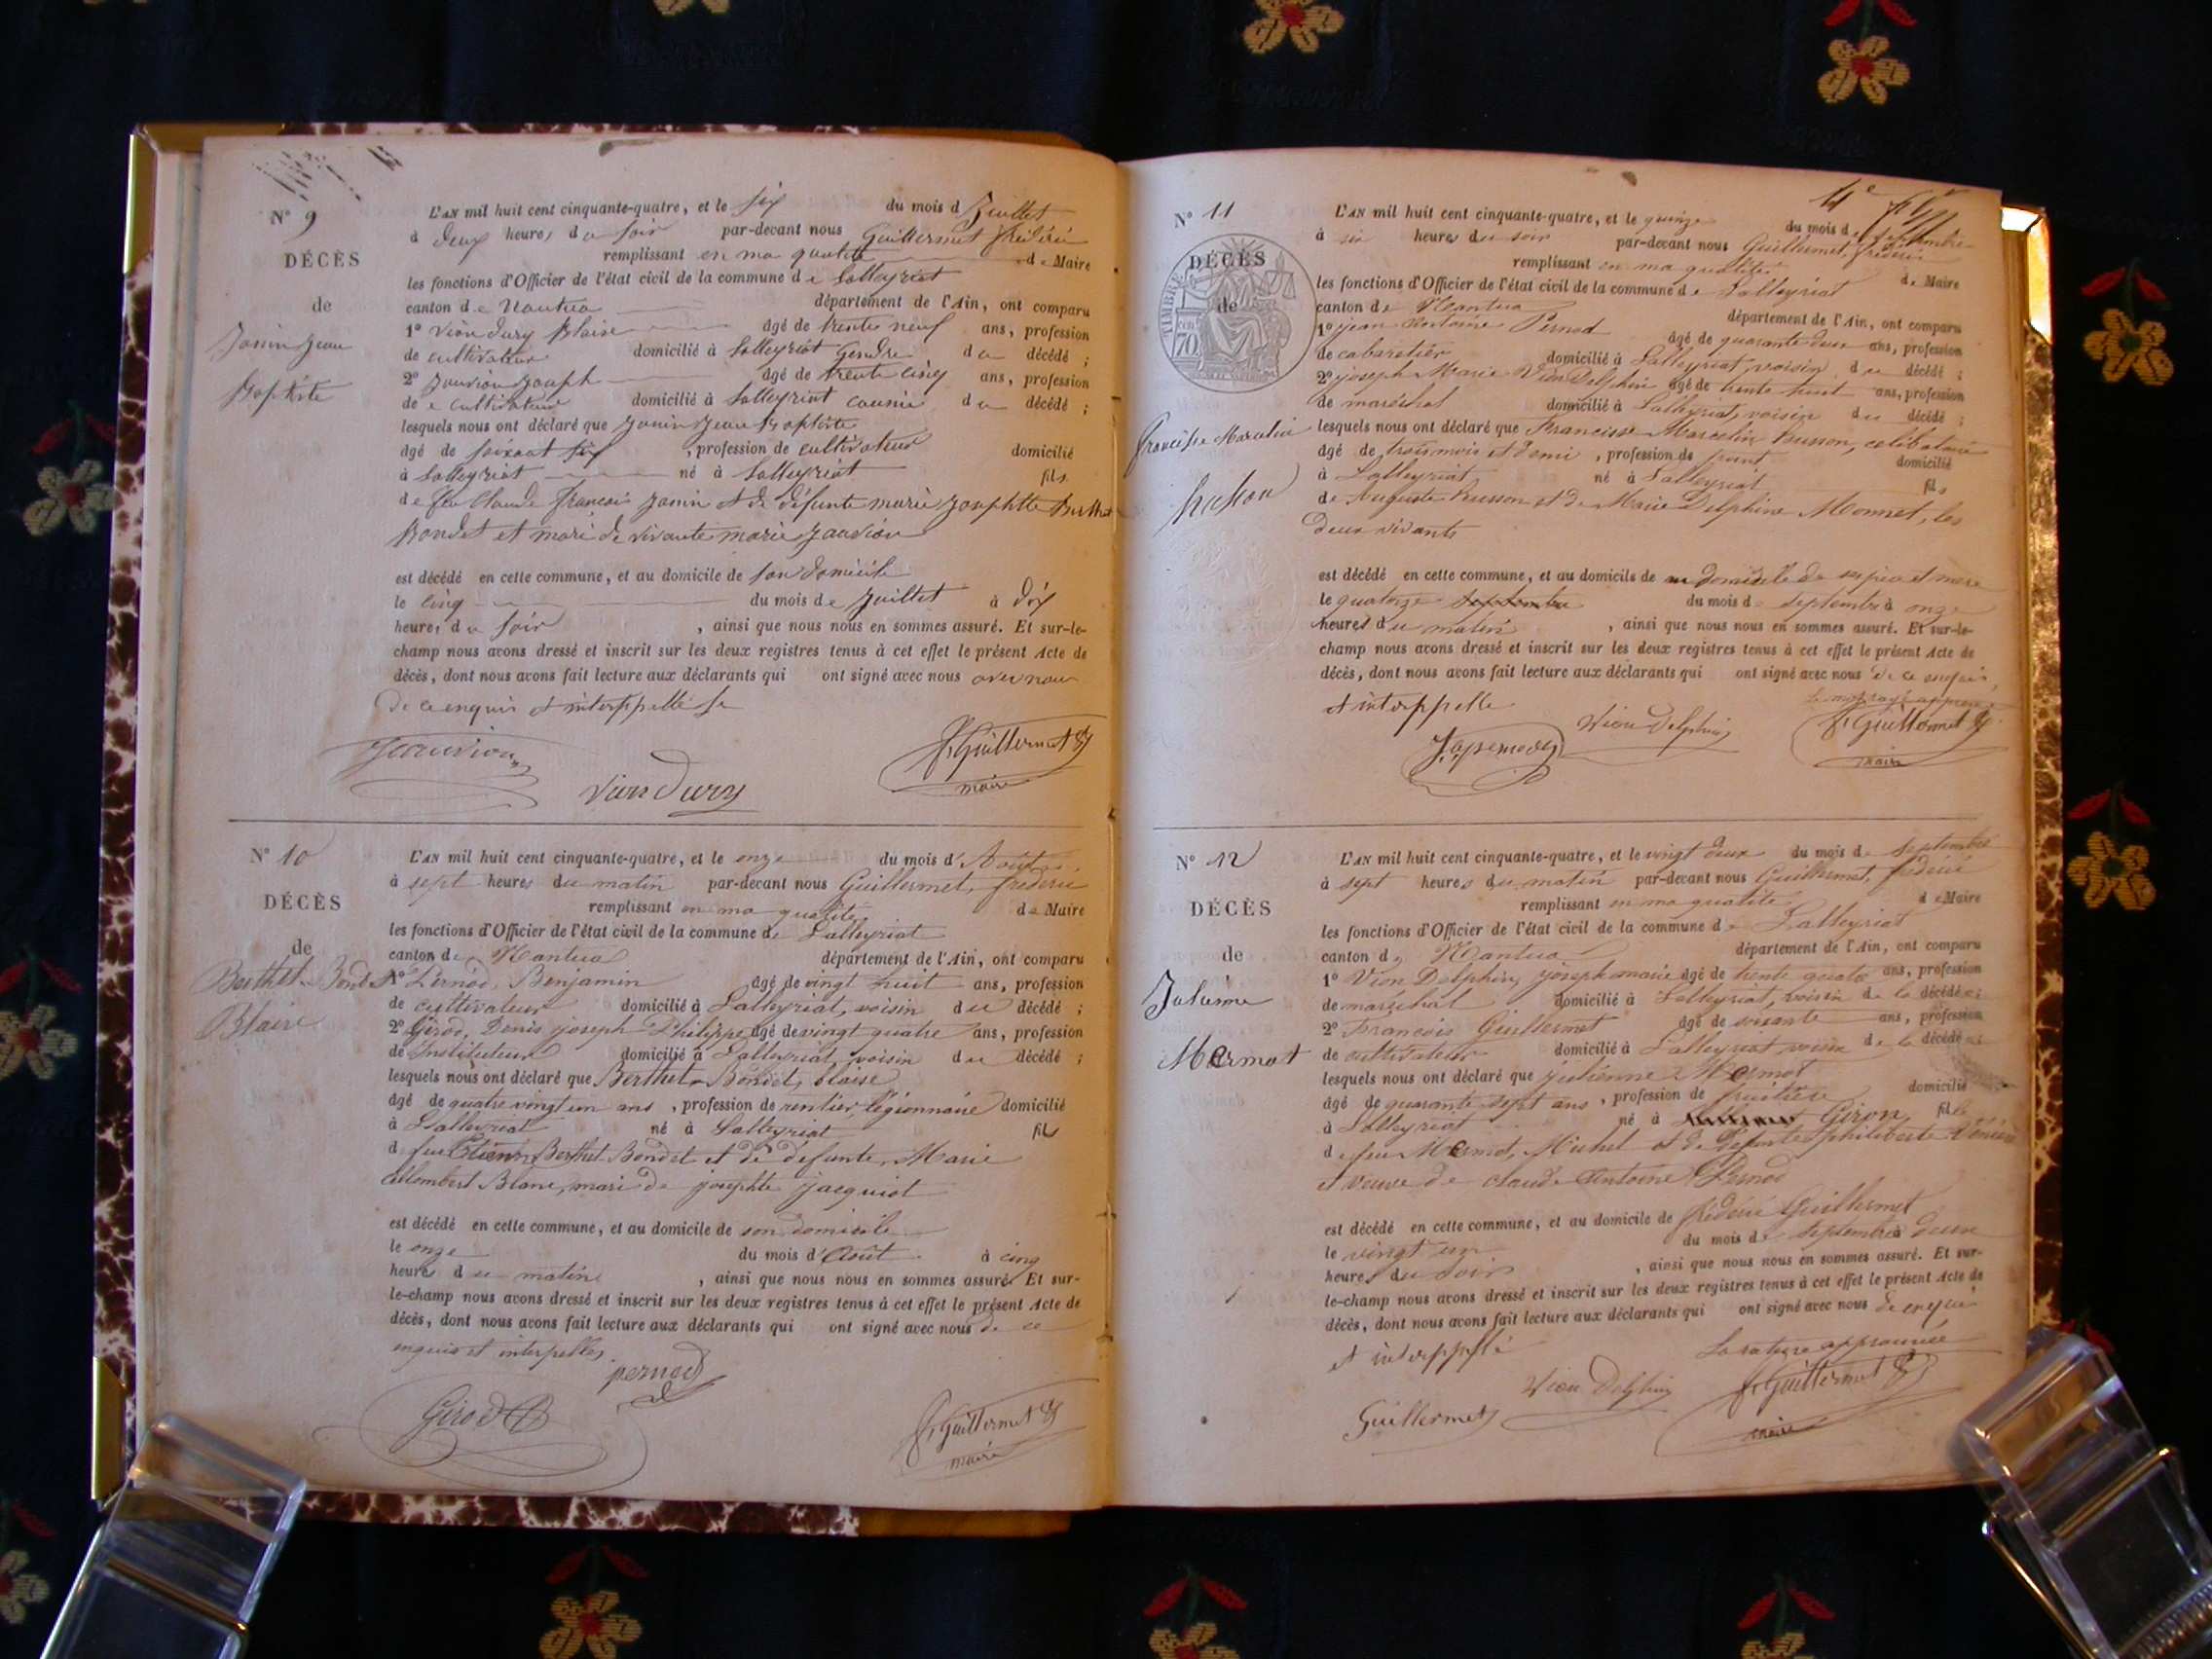 N° 9
DÉCÈS
de
Janin Jean
Baptiste
L'AN mil huit cent cinquante-quatre, et le six du mois d Juillet
à deux heures du soir par-devant nous Guillermet frédéric
remplissant en ma qualité de Maire
les fonctions d'Officier de l'état civil de la commune de Lalleyriat
canton de Nantua département de l'Ain, ont comparu
1° Vion Dury Blaise âgé de trente neuf ans, profession
de cultivateur domicilié à Lalleyriat Gendre du décédé ;
2° Jouvion Joseph âgé de trente cinq ans, profession
de cultivateur domicilié à Lalleyriat cousin du décédé ;
lesquels nous ont déclaré que Janin Jean Baptiste
âgé de soixant six , profession de cultivateur domicilié
à Lalleyriat né à Lalleyriat fils
de feu Claude françois Janin et de défunte marie Josephtte Berthet
Bondet et mari de vivante marie Jouvion
est décédé en cette commune, et au domicile de son domicile
le cinq du mois de Juillet à dix
heures du soir , ainsi que nous nous en sommes assuré. Et sur-le-
champ nous avons dressé et inscrit sur les deux registres tenus à cet effet le présent Acte de
décès, dont nous avons fait lecture aux déclarants qui ont signé avec nous avec nous
De ce enquis et interppellé
Jouvion
Vion Dury
f. Guillermet
maire
N° 10
DÉCÈS
de
Berthet-Bondet
Blaise
L'AN mil huit cent cinquante-quatre, et le onze du mois d'Août
à sept heures du matin par-devant nous Guillermet, frédéric
remplissant en ma qualité de Maire
les fonctions d'Officier de l'état civil de la commune de Lalleyriat
canton de Nantua département de l'Ain, ont comparu
1° Pernod, Benjamin âgé de vingt huit ans, profession
de cultivateur domicilié à Lalleyriat, voisin du décédé ;
2° Girod, Denis joseph Philippe âgé de vingt quatre ans, profession
de Instituteur domicilié à Lalleyriat, voisin du décédé ;
lesquels nous ont déclaré que Berthet-Bondet, blaise
âgé de quatre vingt un ans , profession de rentier, légionnaire domicilié
à Lalleyriat né à Lalleyriat fils
d feu Etienne Berthet Bondet et de défunte, Marie
Allombert Blanc, mari de josephte jacquiot
est décédé en cette commune, et au domicile de son domicile
le onze du mois d'Août à cinq
heures du matin , ainsi que nous nous en sommes assuré. Et sur-
le-champ nous avons dressé et inscrit sur les deux registres tenus à cet effet le présent Acte de
décès, dont nous avons fait lecture aux déclarants qui ont signé avec nous de ce
enquis et interpellés
pernod
Girod
f. Guillermet
maire
4e
N° 11
DÉCÈS
de
TIMBRE
70
Francisse Marcelin
Husson
L'AN mil huit cent cinquante-quatre, et le quinze du mois de septembre
à six heures du soir par-devant nous Guillermet, frédéric
remplissant en ma qualité de Maire
les fonctions d'Officier de l'état civil de la commune de Lalleyriat
canton de Nantua département de l'Ain, ont comparu
1° jean antoine Pernod âgé de quarante deux ans, profession
de cabaretier domicilié à Lalleyriat, voisin du décédé ;
2° joseph Marie Vion Delphin âgé de trente huit ans, profession
de maréchal domicilié à Lalleyriat, voisin du décédé ;
lesquels nous ont déclaré que Francisse Marcelin husson, célibataire
âgé de trois mois et demi , profession de point domicilié
à Lalleyriat né à Lalleyriat fils
de Auguste husson et de Marie Delphine Monnet, les
deux vivants
est décédé en cette commune, et au domicile de au domicile de ses père et mère
le quatorze septembre du mois d septembre à onze
heures du matin , ainsi que nous nous en sommes assuré. Et sur-le-
champ nous avons dressé et inscrit sur les deux registres tenus à cet effet le présent Acte de
décès, dont nous avons fait lecture aux déclarants qui ont signé avec nous de ce enquis
et interppellé
J. a. pernod
Vion Delphin
f. Guillermet
maire
N° 12
DÉCÈS
de
Julienne
Mermet
L'AN mil huit cent cinquante-quatre, et le vingt deux du mois de septembre
à sept heures du matin par-devant nous Guillermet, frédéric
remplissant en ma qualité de Maire
les fonctions d'Officier de l'état civil de la commune de Lalleyriat
canton de Nantua département de l'Ain, ont comparu
1° Vion Delphin, joseph marie âgé de trente quatre ans, profession
de maréchal domicilié à Lalleyriat, voisin de la décédée ;
2° François Guillermet âgé de soixante ans, profession
de cultivateur domicilié à Lalleyriat voisin de la décédée ;
lesquels nous ont déclaré que julienne Mermet
âgé de quarante sept ans , profession de fruitière domicilié
à Lalleyriat né à Giron fille
de feu Mermet, Michel et de défunte philiberte
et veuve de claude Antoine Pernod
est décédé en cette commune, et au domicile de frédéric Guillermet
le vingt un du mois de septembre à deux
heures du soir , ainsi que nous nous en sommes assuré. Et sur-
le-champ nous avons dressé et inscrit sur les deux registres tenus à cet effet le présent Acte de
décès, dont nous avons fait lecture aux déclarants qui ont signé avec nous de enquis
et interppellé La rature approuvée
Guillermet
Vion Delphin
f. Guillermet
maire